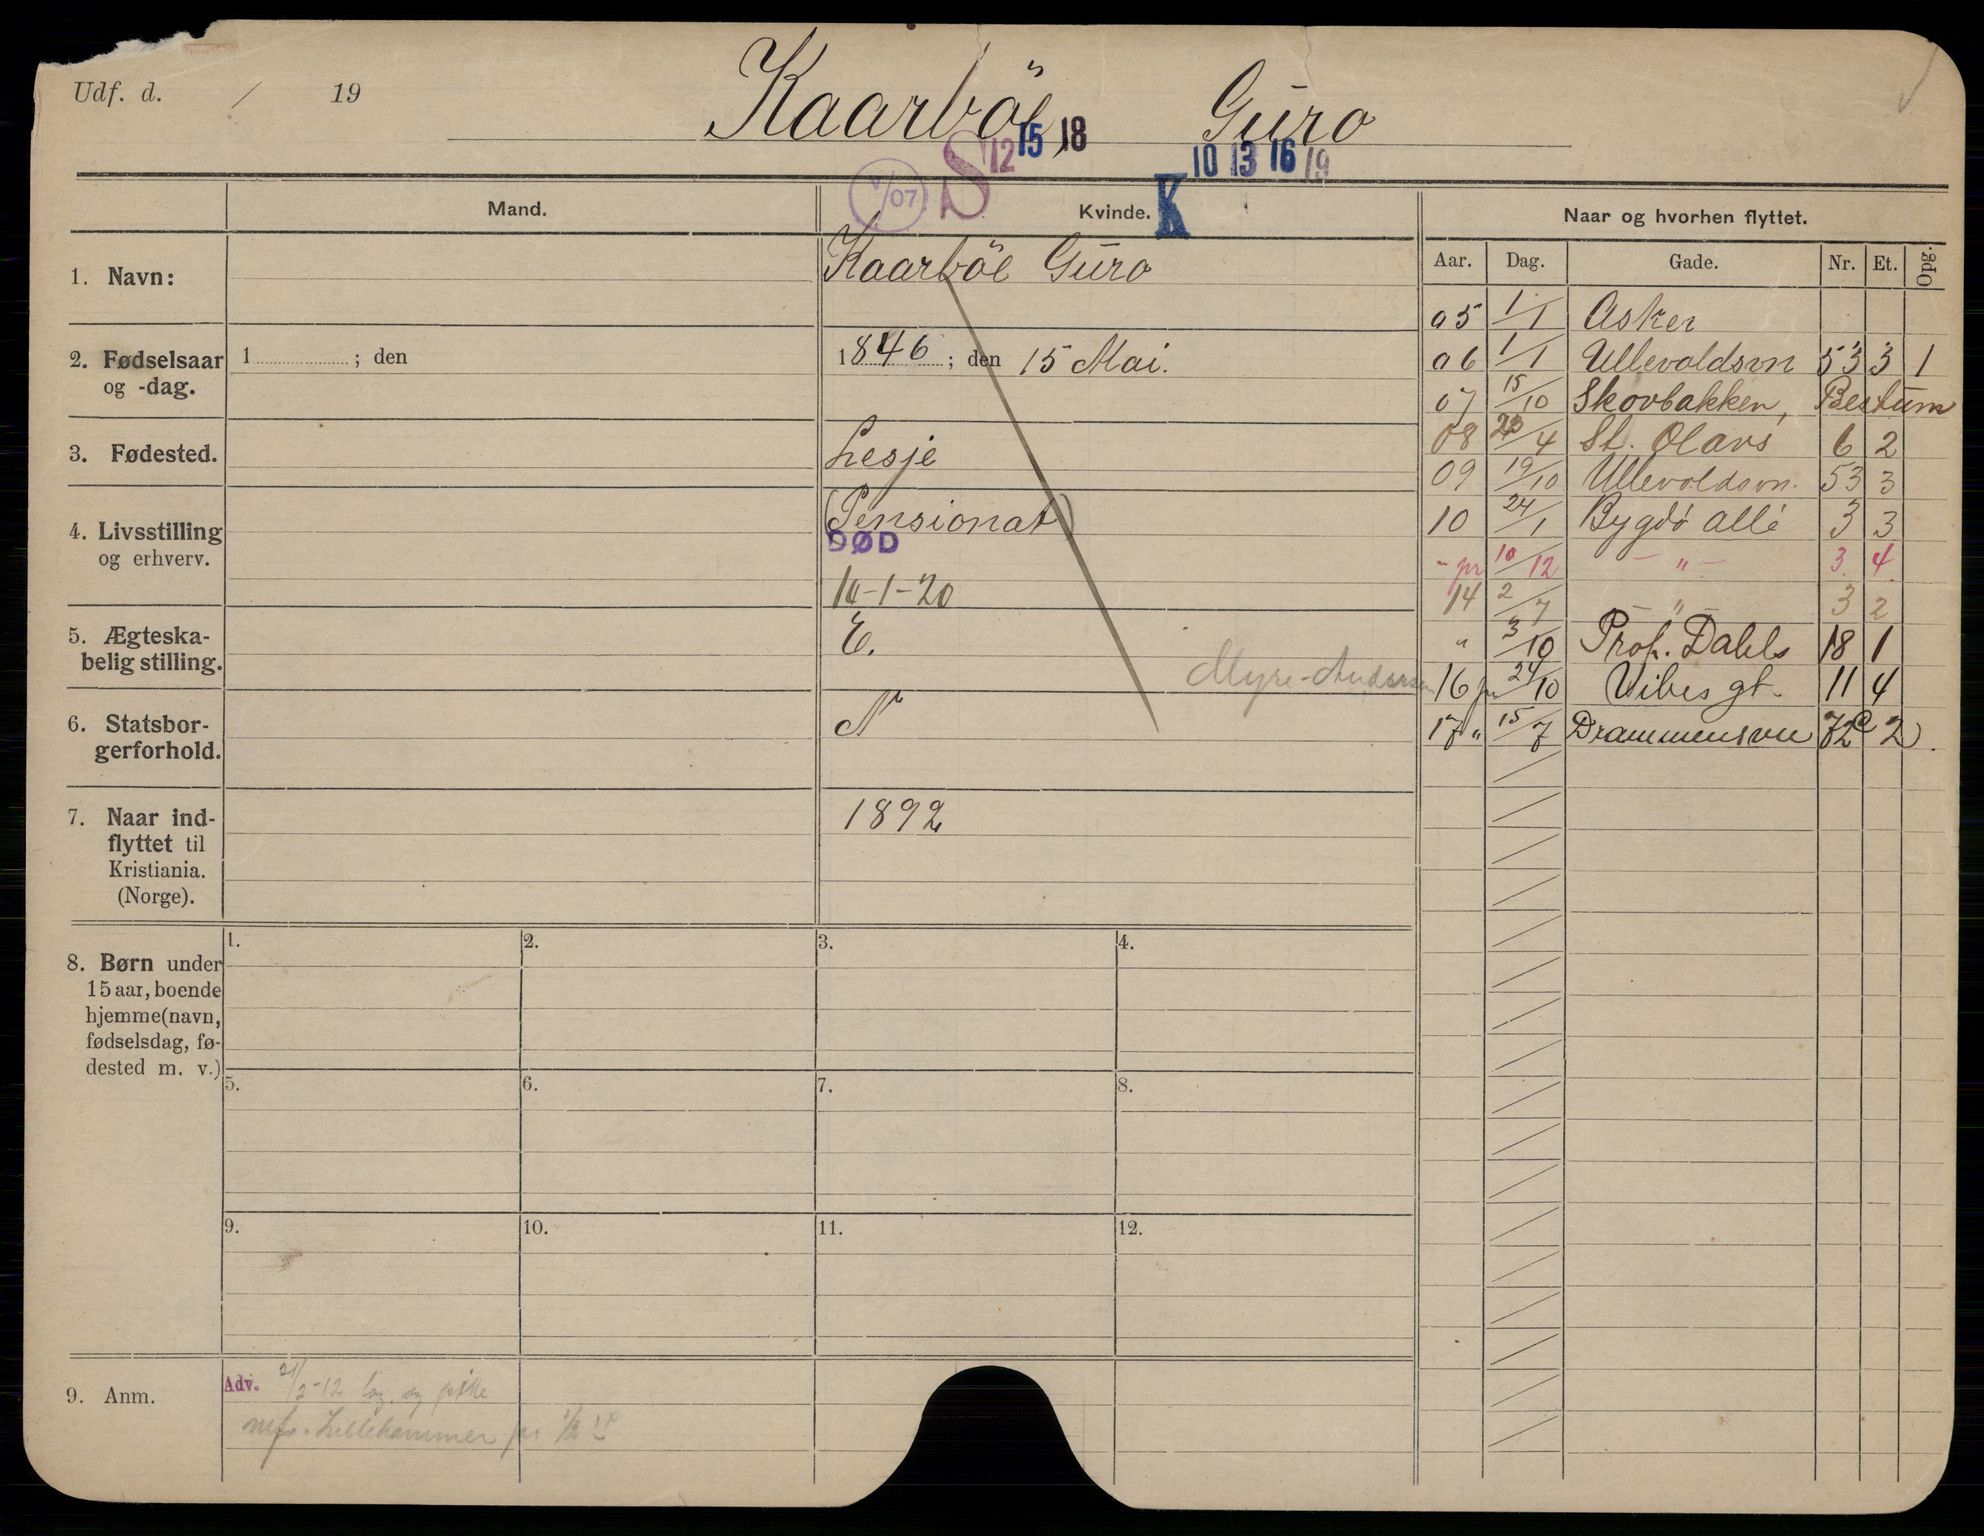 Udf. d. / 19
Kaarböe, Guro
S 12 15 18
K 10 13 16 19
V/07
Mand.
Kvinde.
Naar og hvorhen flyttet.
Aar. Dag. Gade. Nr. Et. Opg.
1. Navn:
Kaarböe Guro
2. Fødselsaar og -dag.
1 ; den
1846 ; den 15 Mai.
3. Fødested.
Lesje
4. Livsstilling og erhverv.
(Pensionat)
DØD
-1-20
5. Ægteska-
belig stilling.
E.
Myre-Andersen
6. Statsbor-
gerforhold.
N
7. Naar ind-
flyttet til
Kristiania.
(Norge).
1892
05 1/1 Asker
06 1/1 Ullevoldsvn 53 3 1
07 15/10 Skovbakken, Bestum
08 /4 St. Olavs 6 2
09 19/10 Ullevoldsvn. 53 3
10 24/1 Bygdö allé 3 3
- pr 10/12 - " - 3. 4.
14 2/7 - " - 3 2
" 3/10 Prof. Dahls 18 1
16 pr 24/10 Vibes gt. 11 4
17 " 15/7 Drammensvn 72c 2.
8. Børn under
15 aar, boende
hjemme (navn,
fødselsdag, fø-
dested m. v.)
1. 2. 3. 4.
5. 6. 7. 8.
9. 10. 11. 12.
9. Anm.
Adv. /2-12 og
Lillehammer